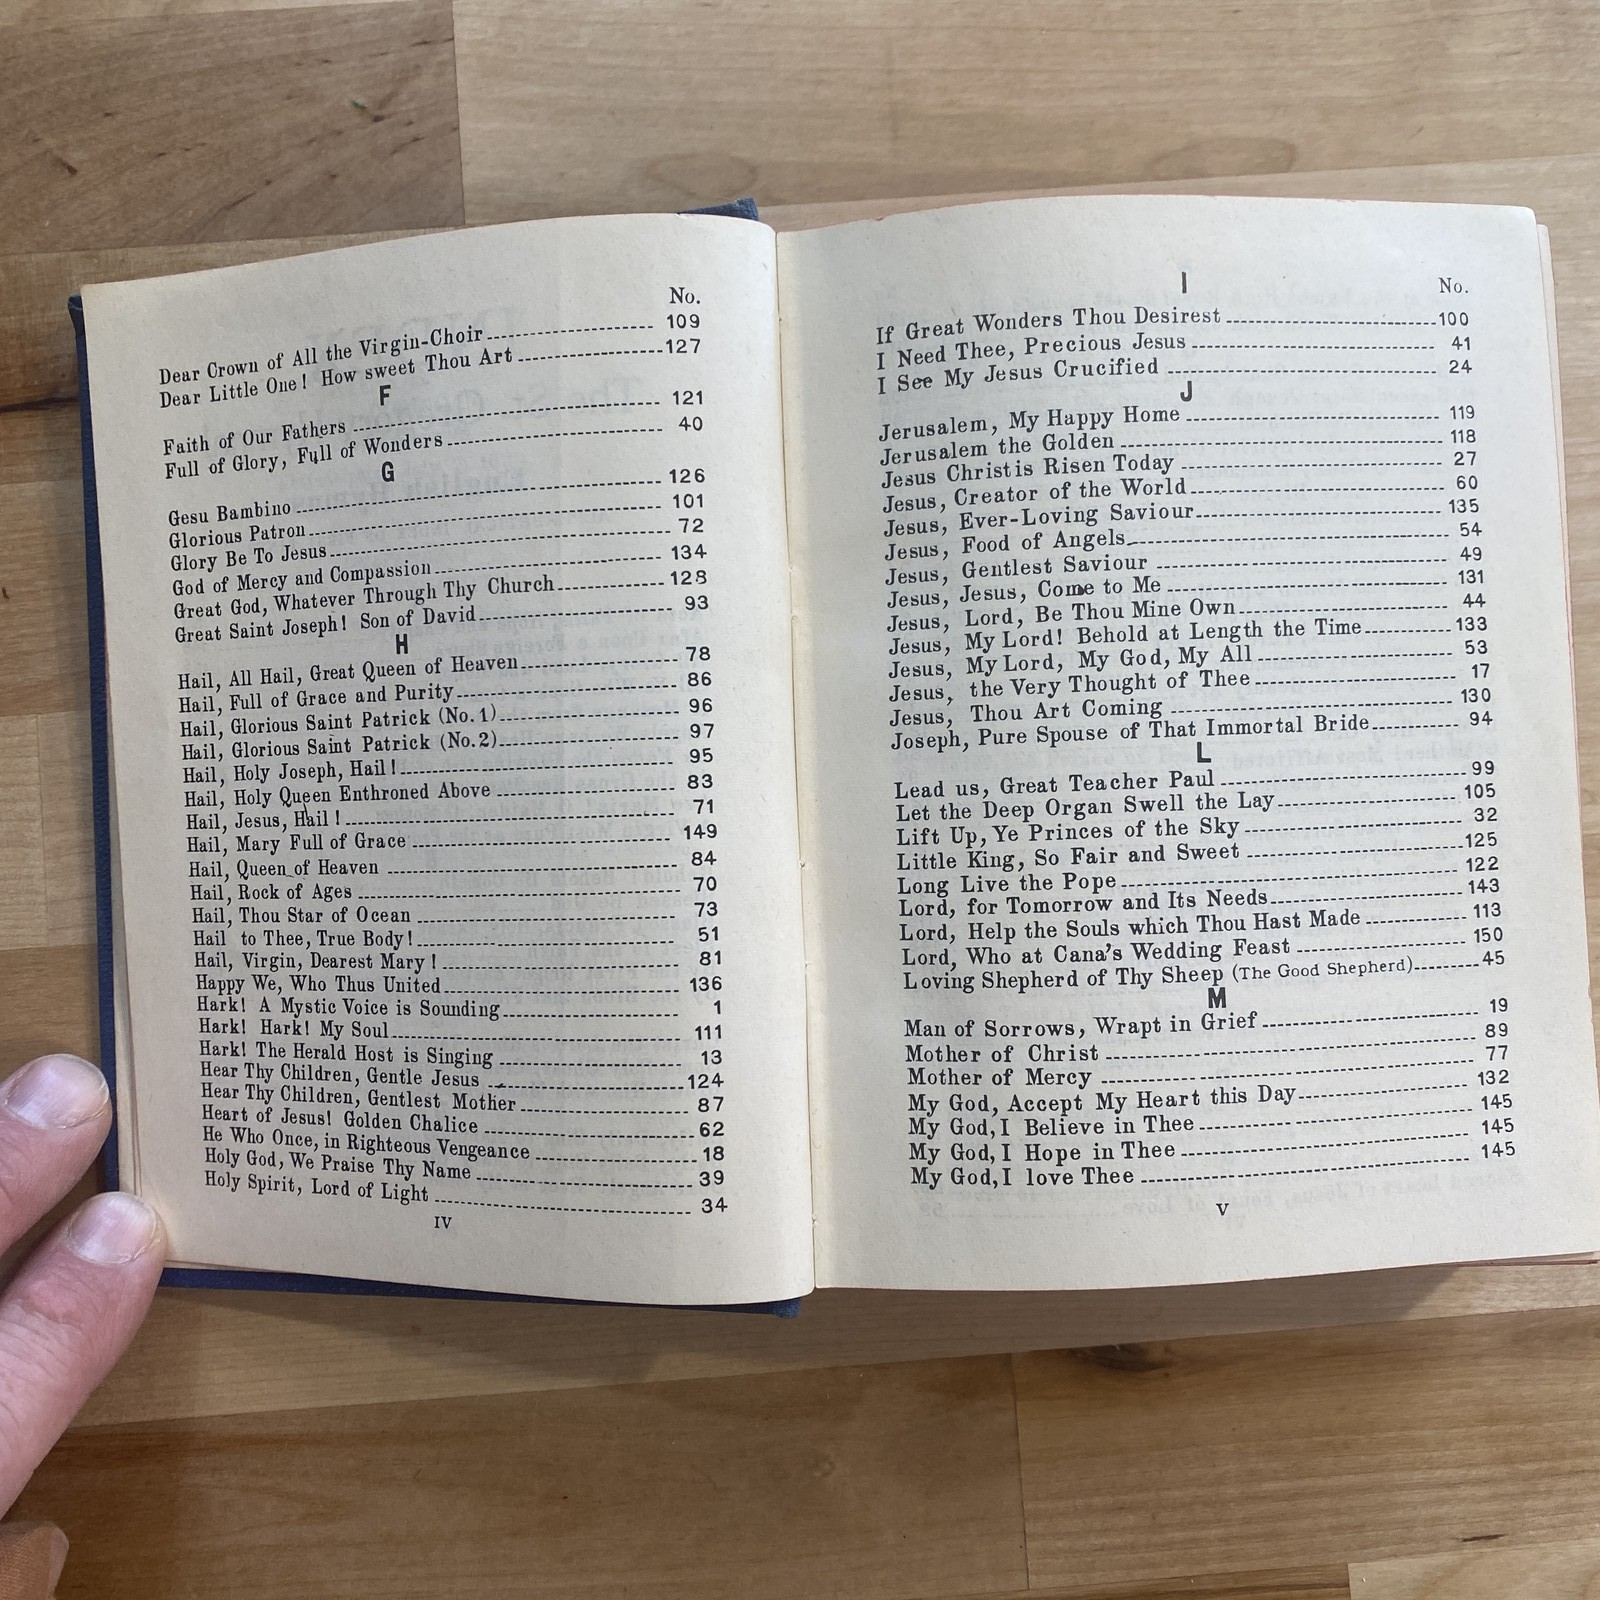 No.
Dear Crown of All the Virgin-Choir 109
Dear Little One! How sweet Thou Art 127
F
Faith of Our Fathers 121
Full of Glory, Full of Wonders 40
G
Gesu Bambino 126
Glorious Patron 101
Glory Be To Jesus 72
God of Mercy and Compassion 134
Great God, Whatever Through Thy Church 128
Great Saint Joseph! Son of David 93
H
Hail, All Hail, Great Queen of Heaven 78
Hail, Full of Grace and Purity 86
Hail, Glorious Saint Patrick (No. 1) 96
Hail, Glorious Saint Patrick (No. 2) 97
Hail, Holy Joseph, Hail! 95
Hail, Holy Queen Enthroned Above 83
Hail, Jesus, Hail! 71
Hail, Mary Full of Grace 149
Hail, Queen of Heaven 84
Hail, Rock of Ages 70
Hail, Thou Star of Ocean 73
Hail to Thee, True Body! 51
Hail, Virgin, Dearest Mary! 81
Happy We, Who Thus United 136
Hark! A Mystic Voice is Sounding 1
Hark! Hark! My Soul 111
Hark! The Herald Host is Singing 13
Hear Thy Children, Gentle Jesus 124
Hear Thy Children, Gentlest Mother 87
Heart of Jesus! Golden Chalice 62
He Who Once, in Righteous Vengeance 18
Holy God, We Praise Thy Name 39
Holy Spirit, Lord of Light 34
IV
I
No.
If Great Wonders Thou Desirest 100
I Need Thee, Precious Jesus 41
I See My Jesus Crucified 24
J
Jerusalem, My Happy Home 119
Jerusalem the Golden 118
Jesus Christ is Risen Today 27
Jesus, Creator of the World 60
Jesus, Ever-Loving Saviour 135
Jesus, Food of Angels 54
Jesus, Gentlest Saviour 49
Jesus, Jesus, Come to Me 131
Jesus, Lord, Be Thou Mine Own 44
Jesus, My Lord! Behold at Length the Time 133
Jesus, My Lord, My God, My All 53
Jesus, the Very Thought of Thee 17
Jesus, Thou Art Coming 130
Joseph, Pure Spouse of That Immortal Bride 94
L
Lead us, Great Teacher Paul 99
Let the Deep Organ Swell the Lay 105
Lift Up, Ye Princes of the Sky 32
Little King, So Fair and Sweet 125
Long Live the Pope 122
Lord, for Tomorrow and Its Needs 143
Lord, Help the Souls which Thou Hast Made 113
Lord, Who at Cana's Wedding Feast 150
Loving Shepherd of Thy Sheep (The Good Shepherd) 45
M
Man of Sorrows, Wrapt in Grief 19
Mother of Christ 89
Mother of Mercy 77
My God, Accept My Heart this Day 132
My God, I Believe in Thee 145
My God, I Hope in Thee 145
My God, I love Thee 145
V